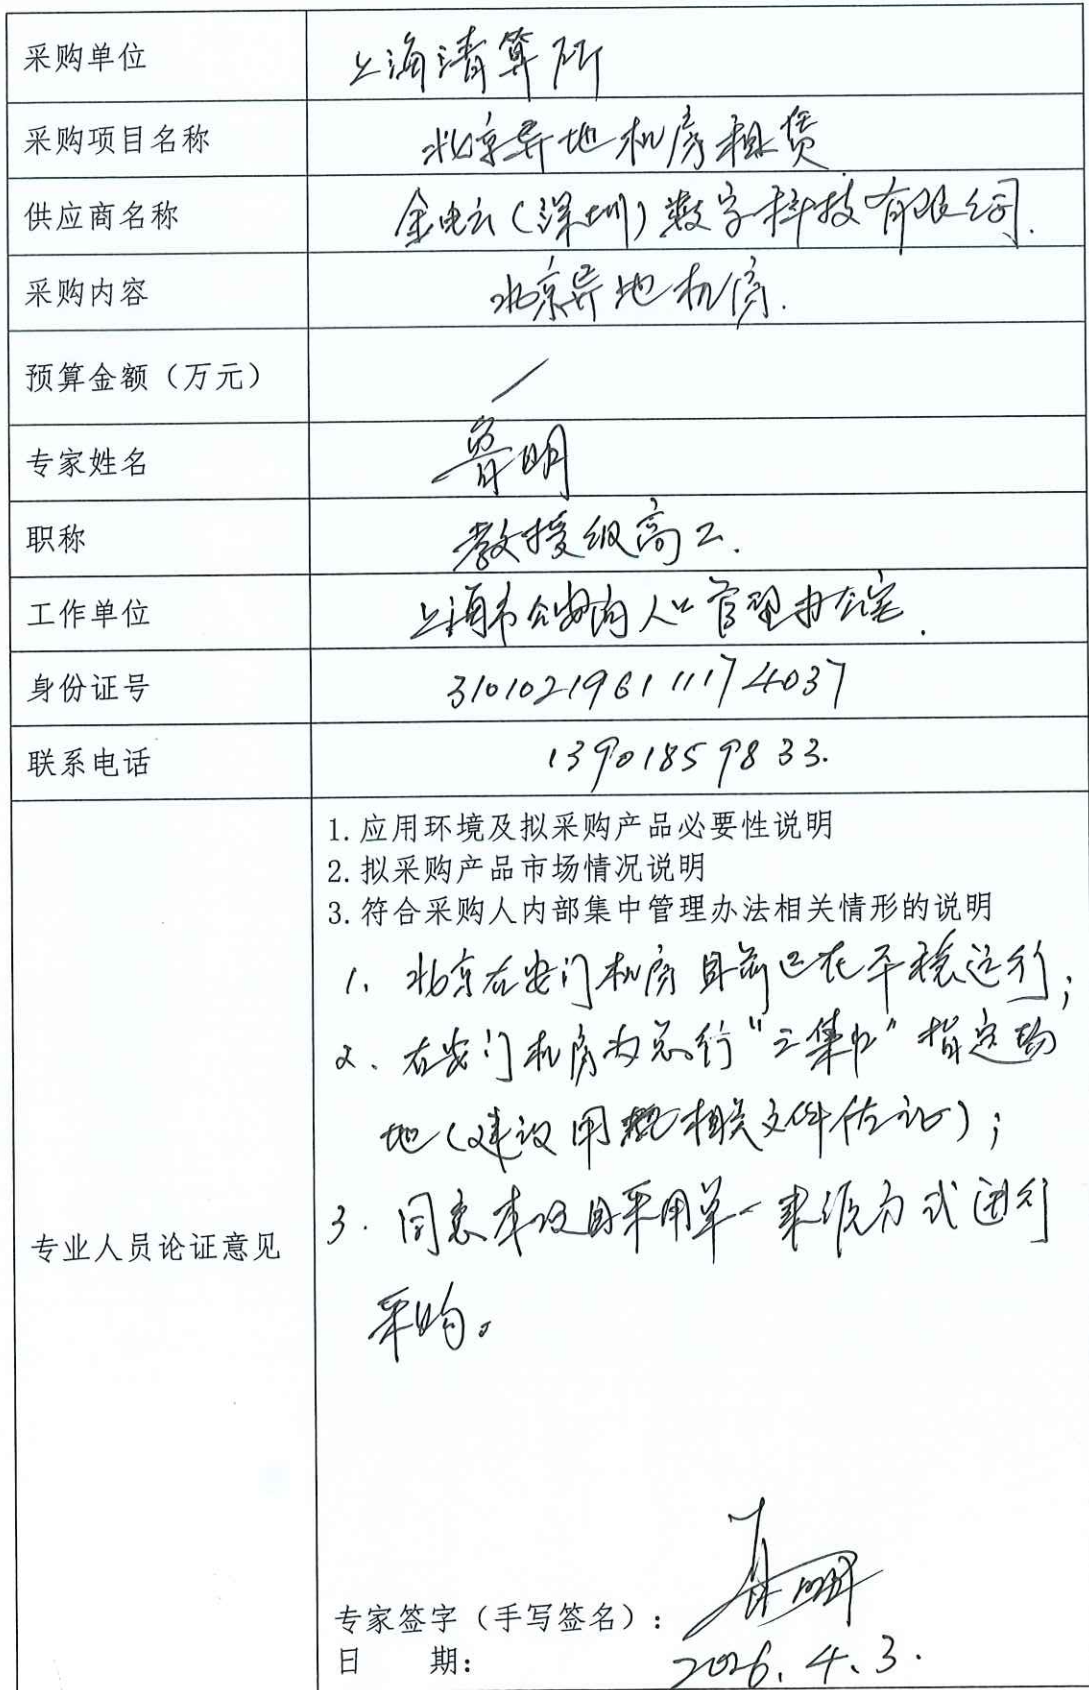 采购单位 上海清算所
采购项目名称 北京异地机房租赁
供应商名称 金电云(深圳)数字科技有限公司.
采购内容 北京异地机房.
预算金额（万元） /
专家姓名 鲁明
职称 教授级高工.
工作单位 上海市公安局人口管理办公室.
身份证号 310102196111174037
联系电话 13901859833.
1.应用环境及拟采购产品必要性说明
2.拟采购产品市场情况说明
3.符合采购人内部集中管理办法相关情形的说明
1、北京右安门机房目前已在平稳运行；
2、右安门机房为总行“三集中”指定场
地(建议用相关文件佐证)；
专业人员论证意见
3.同意本项目采用单一来源方式进行
采购。
专家签字（手写签名）：
日 期： 2026.4.3.